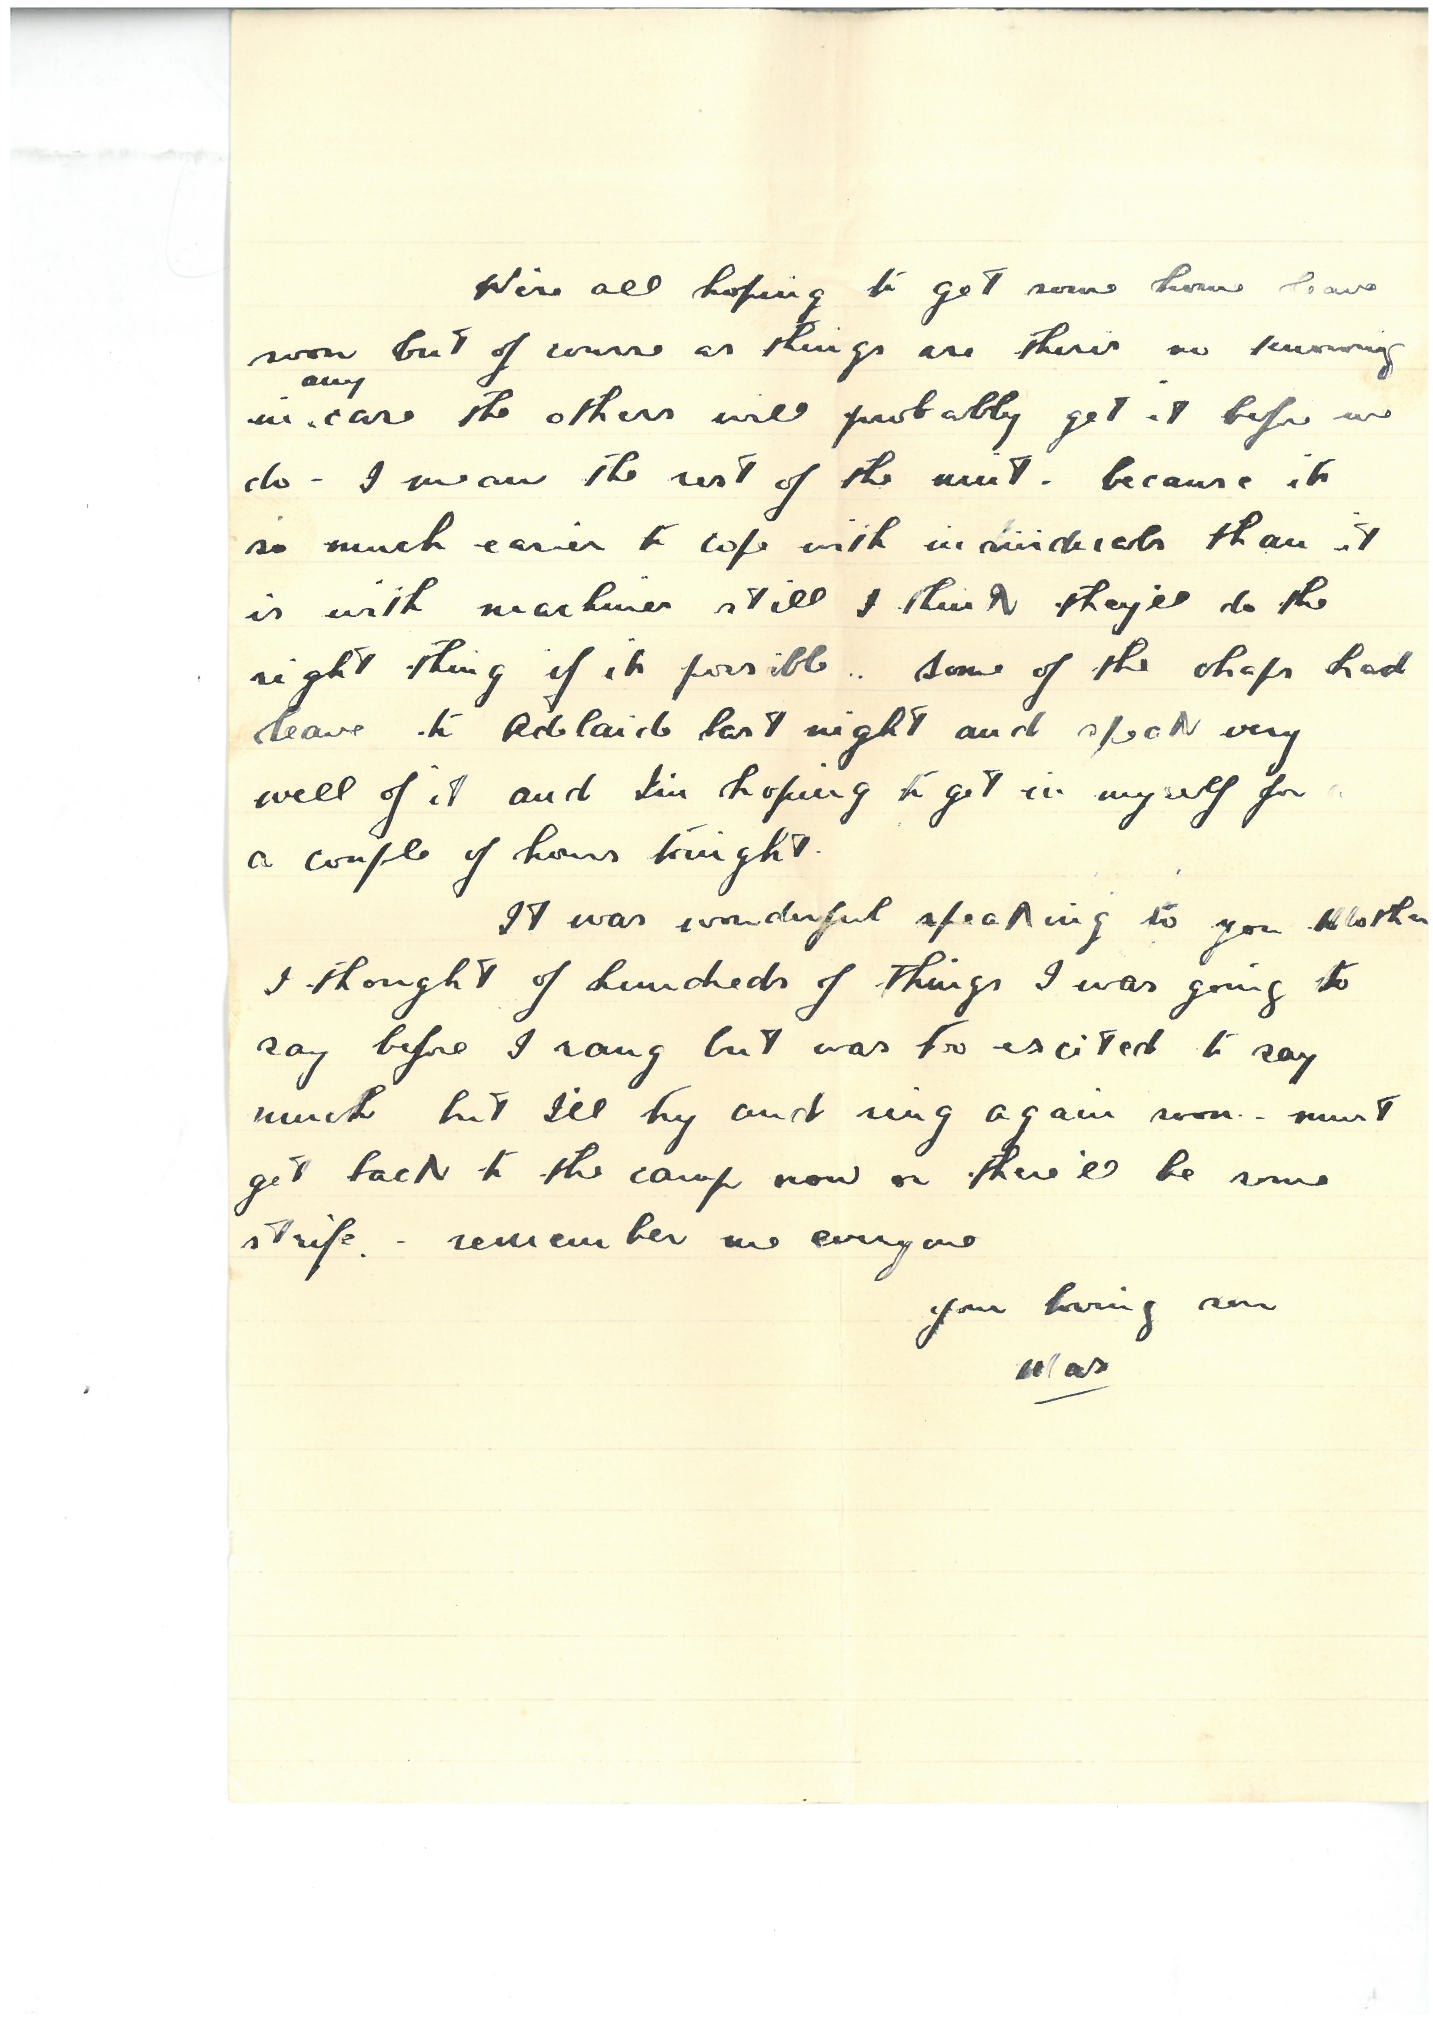 We're all hoping to get some home leave
soon but of course as things are there's no knowing
any
in case the others will probably get it before we
do - I mean the rest of the unit - because its
so much easier to cope with individuals than it
is with machines still I think they'll do the
right thing if its possible .. Some of the chaps had
leave to Adelaide last night and speak very
well of it and I'm hoping to get in myself for
a couple of hours tonight.
It was wonderful speaking to you Mother
I thought of hundreds of things I was going to
say before I rang but was too excited to say
much but I'll try and ring again soon - must
get back to the camp now or there'll be some
strife. - remember me everyone
your loving son